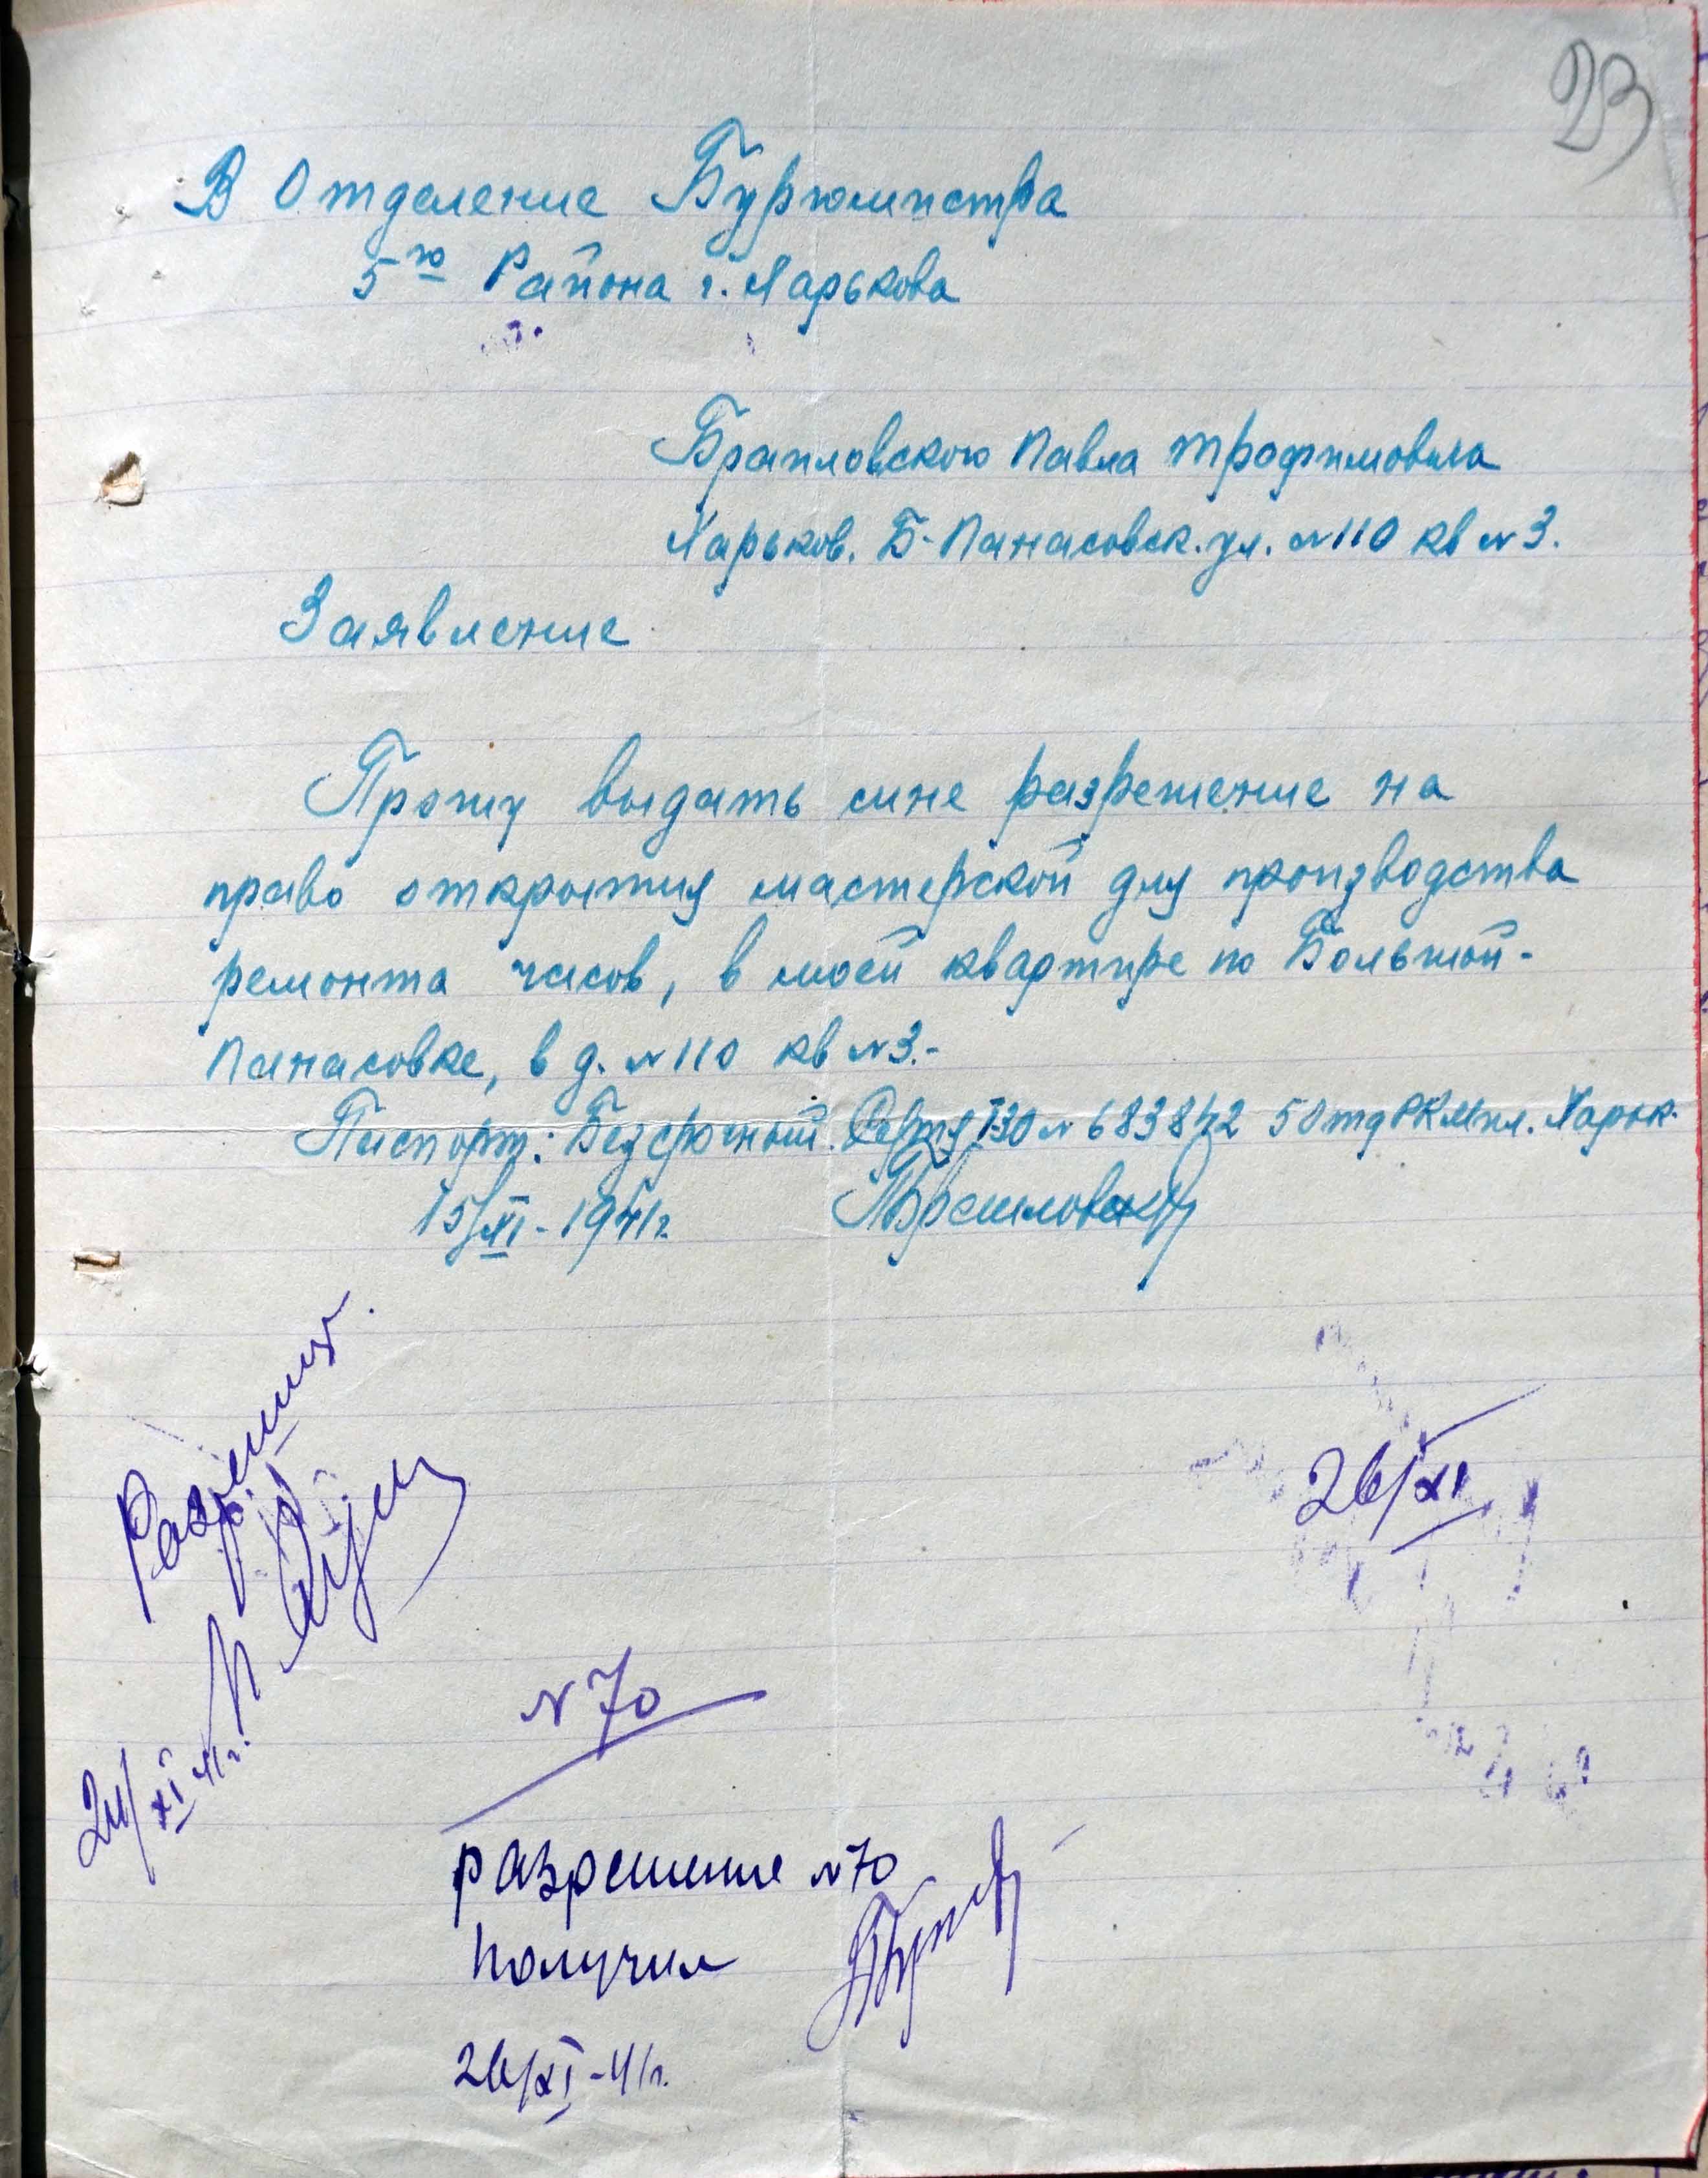 23
В Отделение Бургомистра
5го Района г. Харькова
Браиловского Павла Трофимовича
Харьков. Б-Панасовск. ул. № 110 кв № 3.
Заявление
Прошу выдать мне разрешение на
право открытия мастерской для производства
ремонта часов, в моей квартире по Большой-
Панасовке, в д. № 110 кв № 3.-
Паспорт: Безсрочный. № 683842 5 Отд РКМил. Харьк.
15/XI-1941г. ПБраиловский
Разрешить.
24/XI 41г.
26/XI
№ 70
разрешение № 70
получил
26/XI-41г.